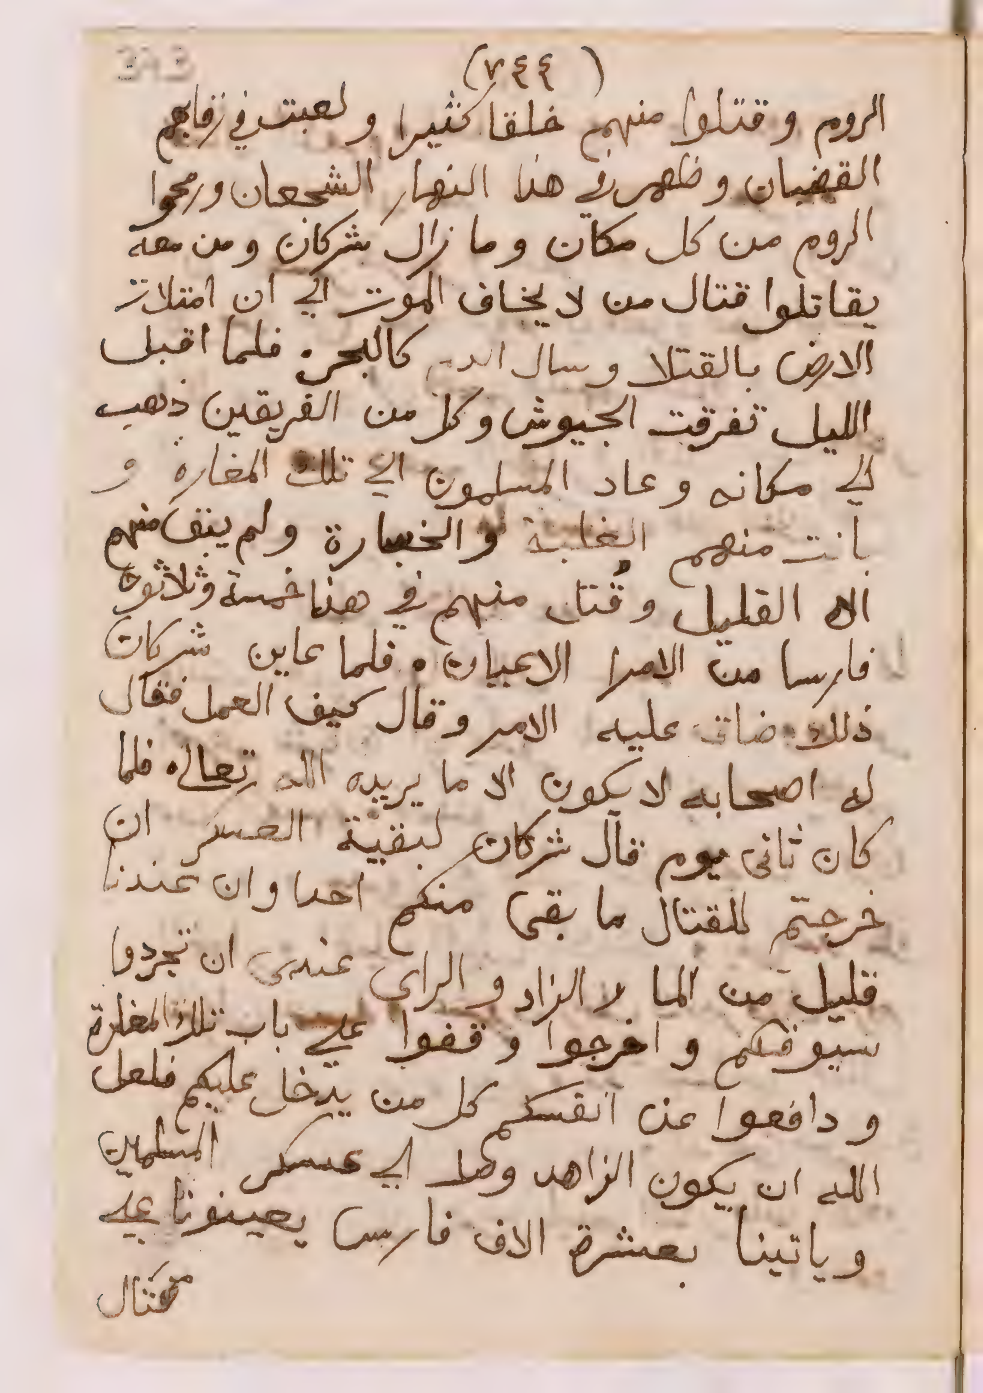 393
(٧٤٤)
الروم و قتلوا منهم خلقا كثيرا و لعبت في رقابهم
القضبان و ظهر في هذا النهار الشجعان ورمحوا
الروم من كل مكان و ما زال شركان و من معه
يقاتلوا قتال من لا يخاف الموت الي ان امتلات
الارض بالقتلا و سال الدم كالبحر. فلما اقبل
الليل تفرقت الجيوش و كل من الفريقين ذهب
الي مكانه و عاد المسلمون الي تلك المغارة و
بانت منهم الغلبة و الخسارة ولم يبق منهم
الا القليل و قُتل منهم في هذا خمسة وثلاثون
فارسا من الامرا الاعيان. فلما عاين شركان
ذلك ضاق عليه الامر و قال كيف العمل فقال
له اصحابه لا يكون الا ما يريده الله تعالى. فلما
كان ثاني يوم قال شركان لبقية العسكر ان
خرجتم للقتال ما بقى منكم احدا وان عندنا
قليل من الما و الزاد و الراى عندى ان تجردوا
سيوفكم و اخرجوا و قفوا علي باب تلك المغارة
و دافعوا عن انفسكم كل من يدخل عليكم فلعل
الله ان يكون الزاهد وصل الي عسكر المسلمين
و ياتينا بعشرة الاف فارس يعينونا علي
قتال